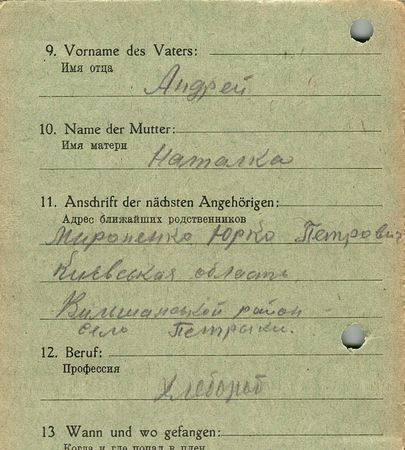 9. Vorname des Vaters:
Имя отца
Андрей
10. Name der Mutter:
Имя матери
Наталка
11. Anschrift der nächsten Angehörigen:
Адрес ближайших родственников
Мироненко Юрко Петрович
Киевская область
Вильшанской район
село Петрики.
12. Beruf:
Профессия
Хлебороб
13 Wann und wo gefangen:
Когда и где попал в плен